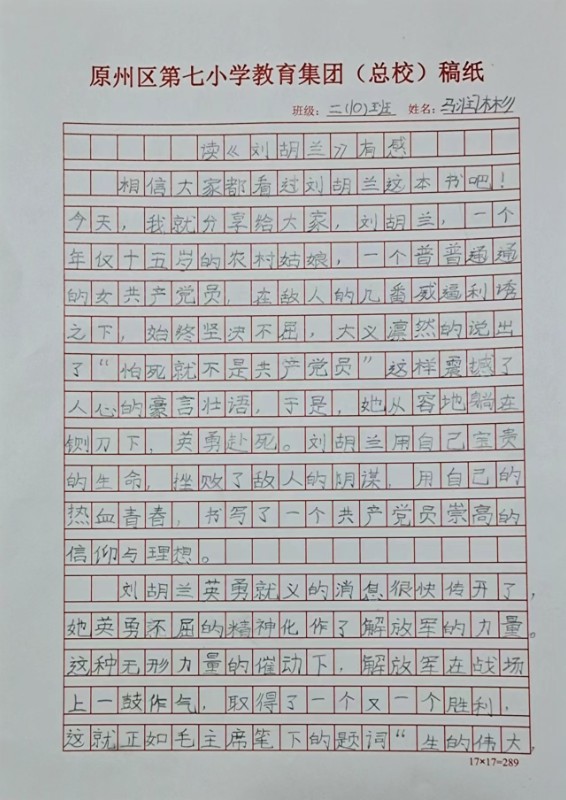 原州区第七小学教育集团（总校）稿纸
班级：二(10)班 姓名：马润林杉
读《刘胡兰》有感
相信大家都看过刘胡兰这本书吧！
今天，我就分享给大家，刘胡兰，一个
年仅十五岁的农村姑娘，一个普普通通
的女共产党员，在敌人的几番威逼利诱
之下，始终坚决不屈，大义凛然的说出
了“怕死就不是共产党员”这样震撼了
人心的豪言壮语，于是，她从容地躺在
铡刀下，英勇赴死。刘胡兰用自己宝贵
的生命，挫败了敌人的阴谋，用自己的
热血青春，书写了一个共产党员崇高的
信仰与理想。
刘胡兰英勇就义的消息很快传开了，
她英勇不屈的精神化作了解放军的力量。
这种无形力量的催动下，解放军在战场
上一鼓作气，取得了一个又一个胜利，
这就正如毛主席笔下的题词“生的伟大，
17×17=289